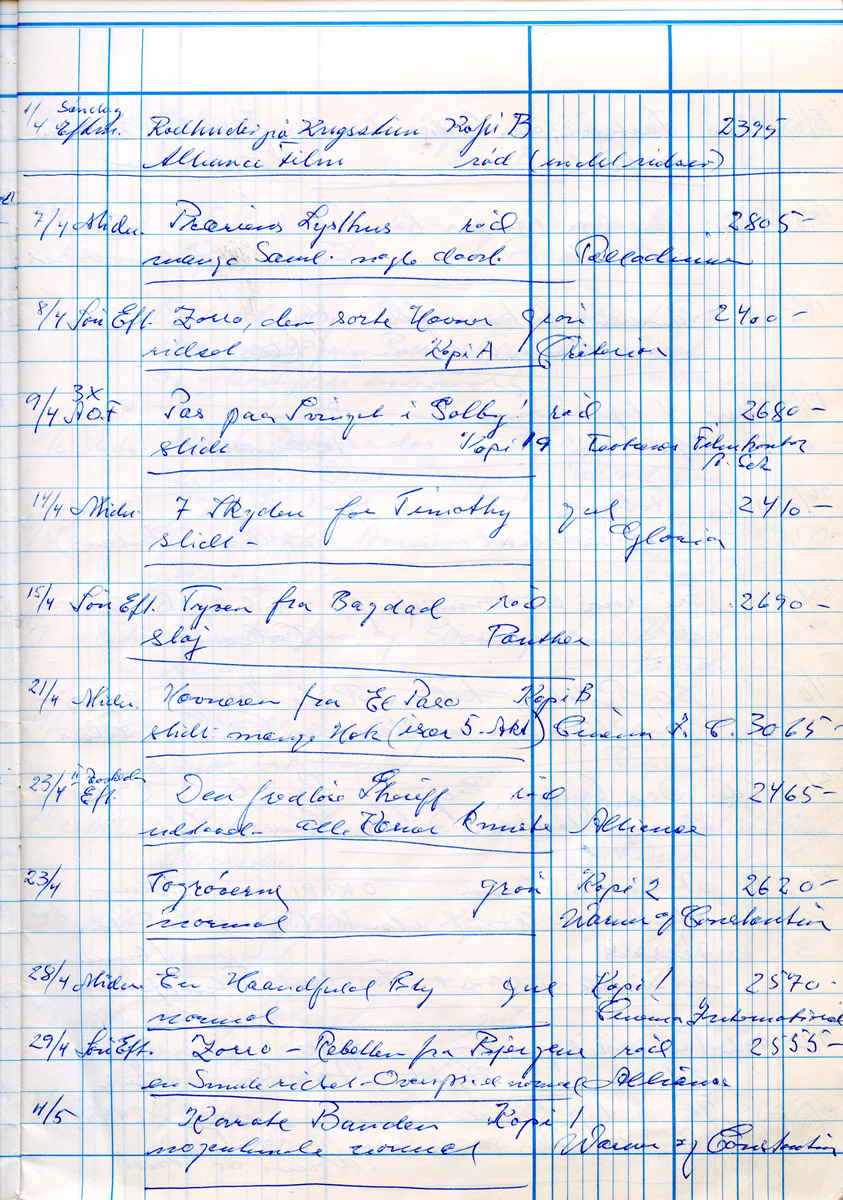 Søndag
1/4 Eftm. Rødhuder på Krigsstien Kopi B 2395
Alliance Film rød (en del ridser)
7/4 Midn. Præriens Lysthus rød 2805-
mange Saml. nogle daarl. Palladium
8/4 Søn Eft. Zorro, den sorte Hævner grøn 2400-
ridset Kopi A Criterion
3x
9/4 AOF Pas paa Svinget i Solby! rød 2680-
slidt Kopi 19 Filmkontor
14/4 Midn. 7 Skyder for Timothy gul 2410.-
slidt - Gloria
15/4 Søn Eft. Tyven fra Bagdad rød 2690-
sløj Panther
21/4 Midn. Hævneren fra El Paso Kopi B
slidt mange Hak (især 5. Akt) Cinema 3065-
23/4 Eft. Den fredløse Sheriff rød 2465-
alle Alliance
23/4 Togrøverne grøn Kopi 2 2620-
normal Warner og Constantin
28/4 Midn. En Haandfuld Bly gul Kopi 1 2570-
normal Cinema International
29/4 Søn Eft. Zorro - Rebellen fra Bjergene rød 2555-
en Smule ridset - normal Alliance
4/5 Karate Banden Kopi 1
nogenlunde normal Warner og Constantin